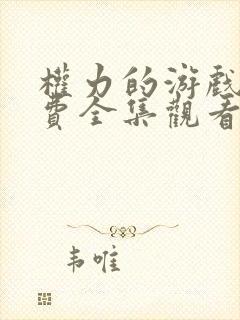 權力的游戲
費全集觀看
韦唯